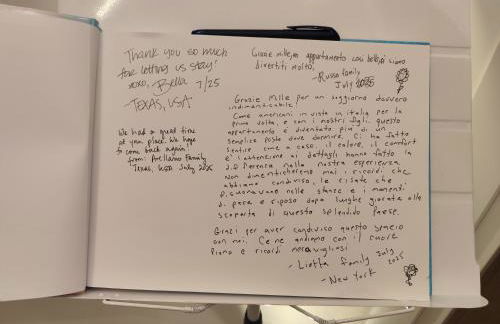 Thank you so much
for letting us stay!
xoxo, Bella 7/25
TEXAS, USA
We had a great time
at your place. We hope
to come back again
from Arellano Family
Texas, USA July 2025
Grazie mille, un appartamento così bello, ci siamo
divertiti molto,
- Russo family
July 2025
Grazie Mille per un soggiorno davvero
indimenticabile!
Come americani in visita in Italia per la
prima volta, e con i nostri figli, questo
appartamento è diventato più di un
semplice posto dove dormire. Ci ha fatto
sentire come a casa, il calore, il comfort
e l'attenzione ai dettagli hanno fatto la
differenza nella nostra esperienza.
Non dimenticheremo mai i ricordi che
abbiamo condiviso, le risate che
risuonavano nelle stanze e i momenti
di pace e riposo dopo lunghe giornate alla
scoperta di questo splendido Paese.
Grazi per aver condiviso questo spazio
con noi. Ce ne andiamo con il cuore
pieno e ricordi meravigliosi
- Liotta family July
2025
- New York